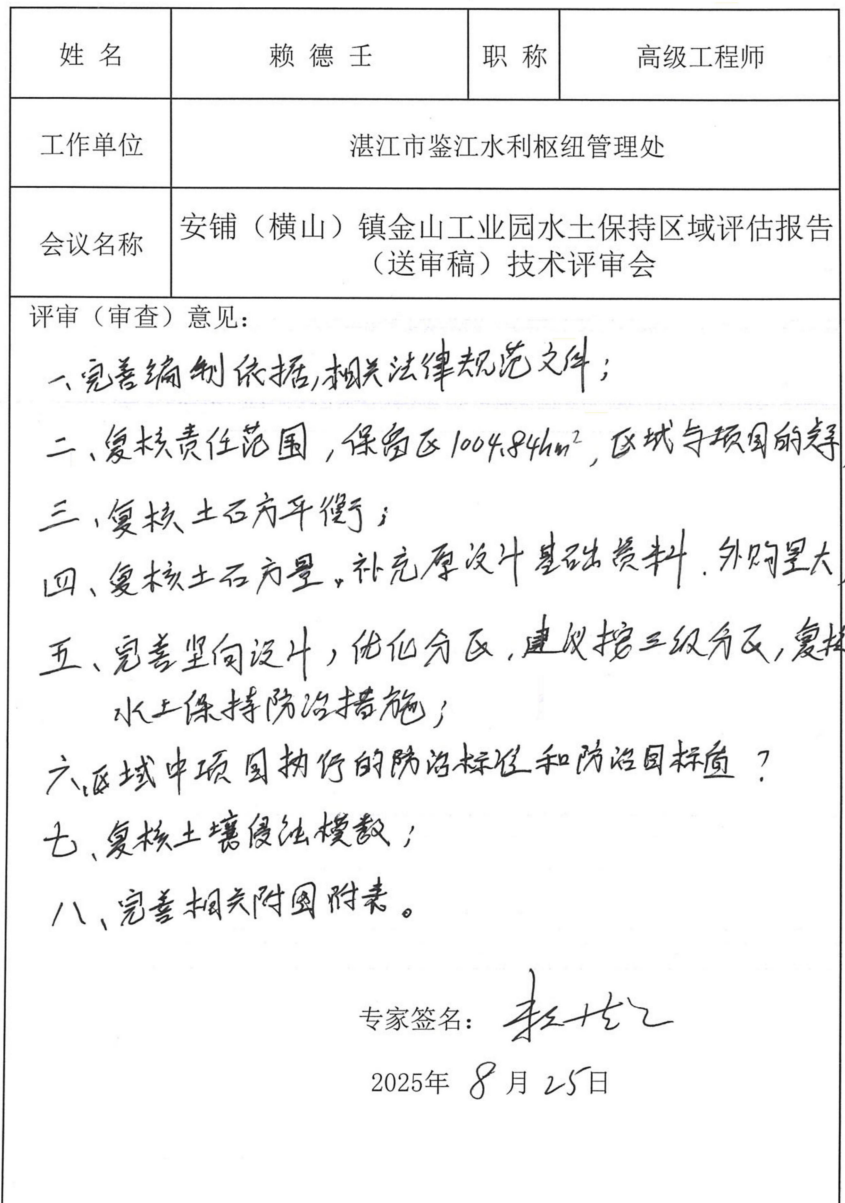 姓 名 赖 德 壬 职 称 高级工程师
工作单位 湛江市鉴江水利枢纽管理处
会议名称 安铺（横山）镇金山工业园水土保持区域评估报告
（送审稿）技术评审会
评审（审查）意见：
一、完善编制依据，相关法律规范文件；
二、复核责任范围，保留区1004.84hm²，区域与项目的
三、复核土石方平衡；
四、复核土石方量。补充原设计基础资料．外购量大
五、完善竖向设计，优化分区，建议按三级分区，复核
水土保持防治措施；
六、区域中项目执行的防治标准和防治目标值？
七、复核土壤侵蚀模数；
八、完善相关附图附表。
专家签名：
2025年 8 月 25日